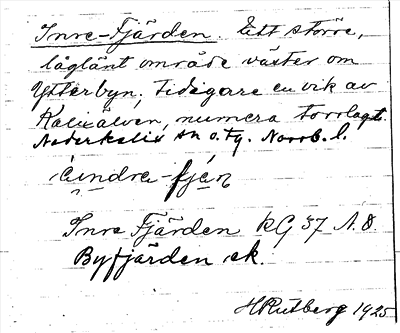 Inre-Fjärden. Ett större,
låglänt område väster om
Ytterbyn. Tidigare en vik av
Kalixälven, numera torrlagt.
Nederkalix sn o. tg. Norrb. l.
Inre Fjärden KG 37 N.D.
Byfjärden ek.
H Rutberg 1925